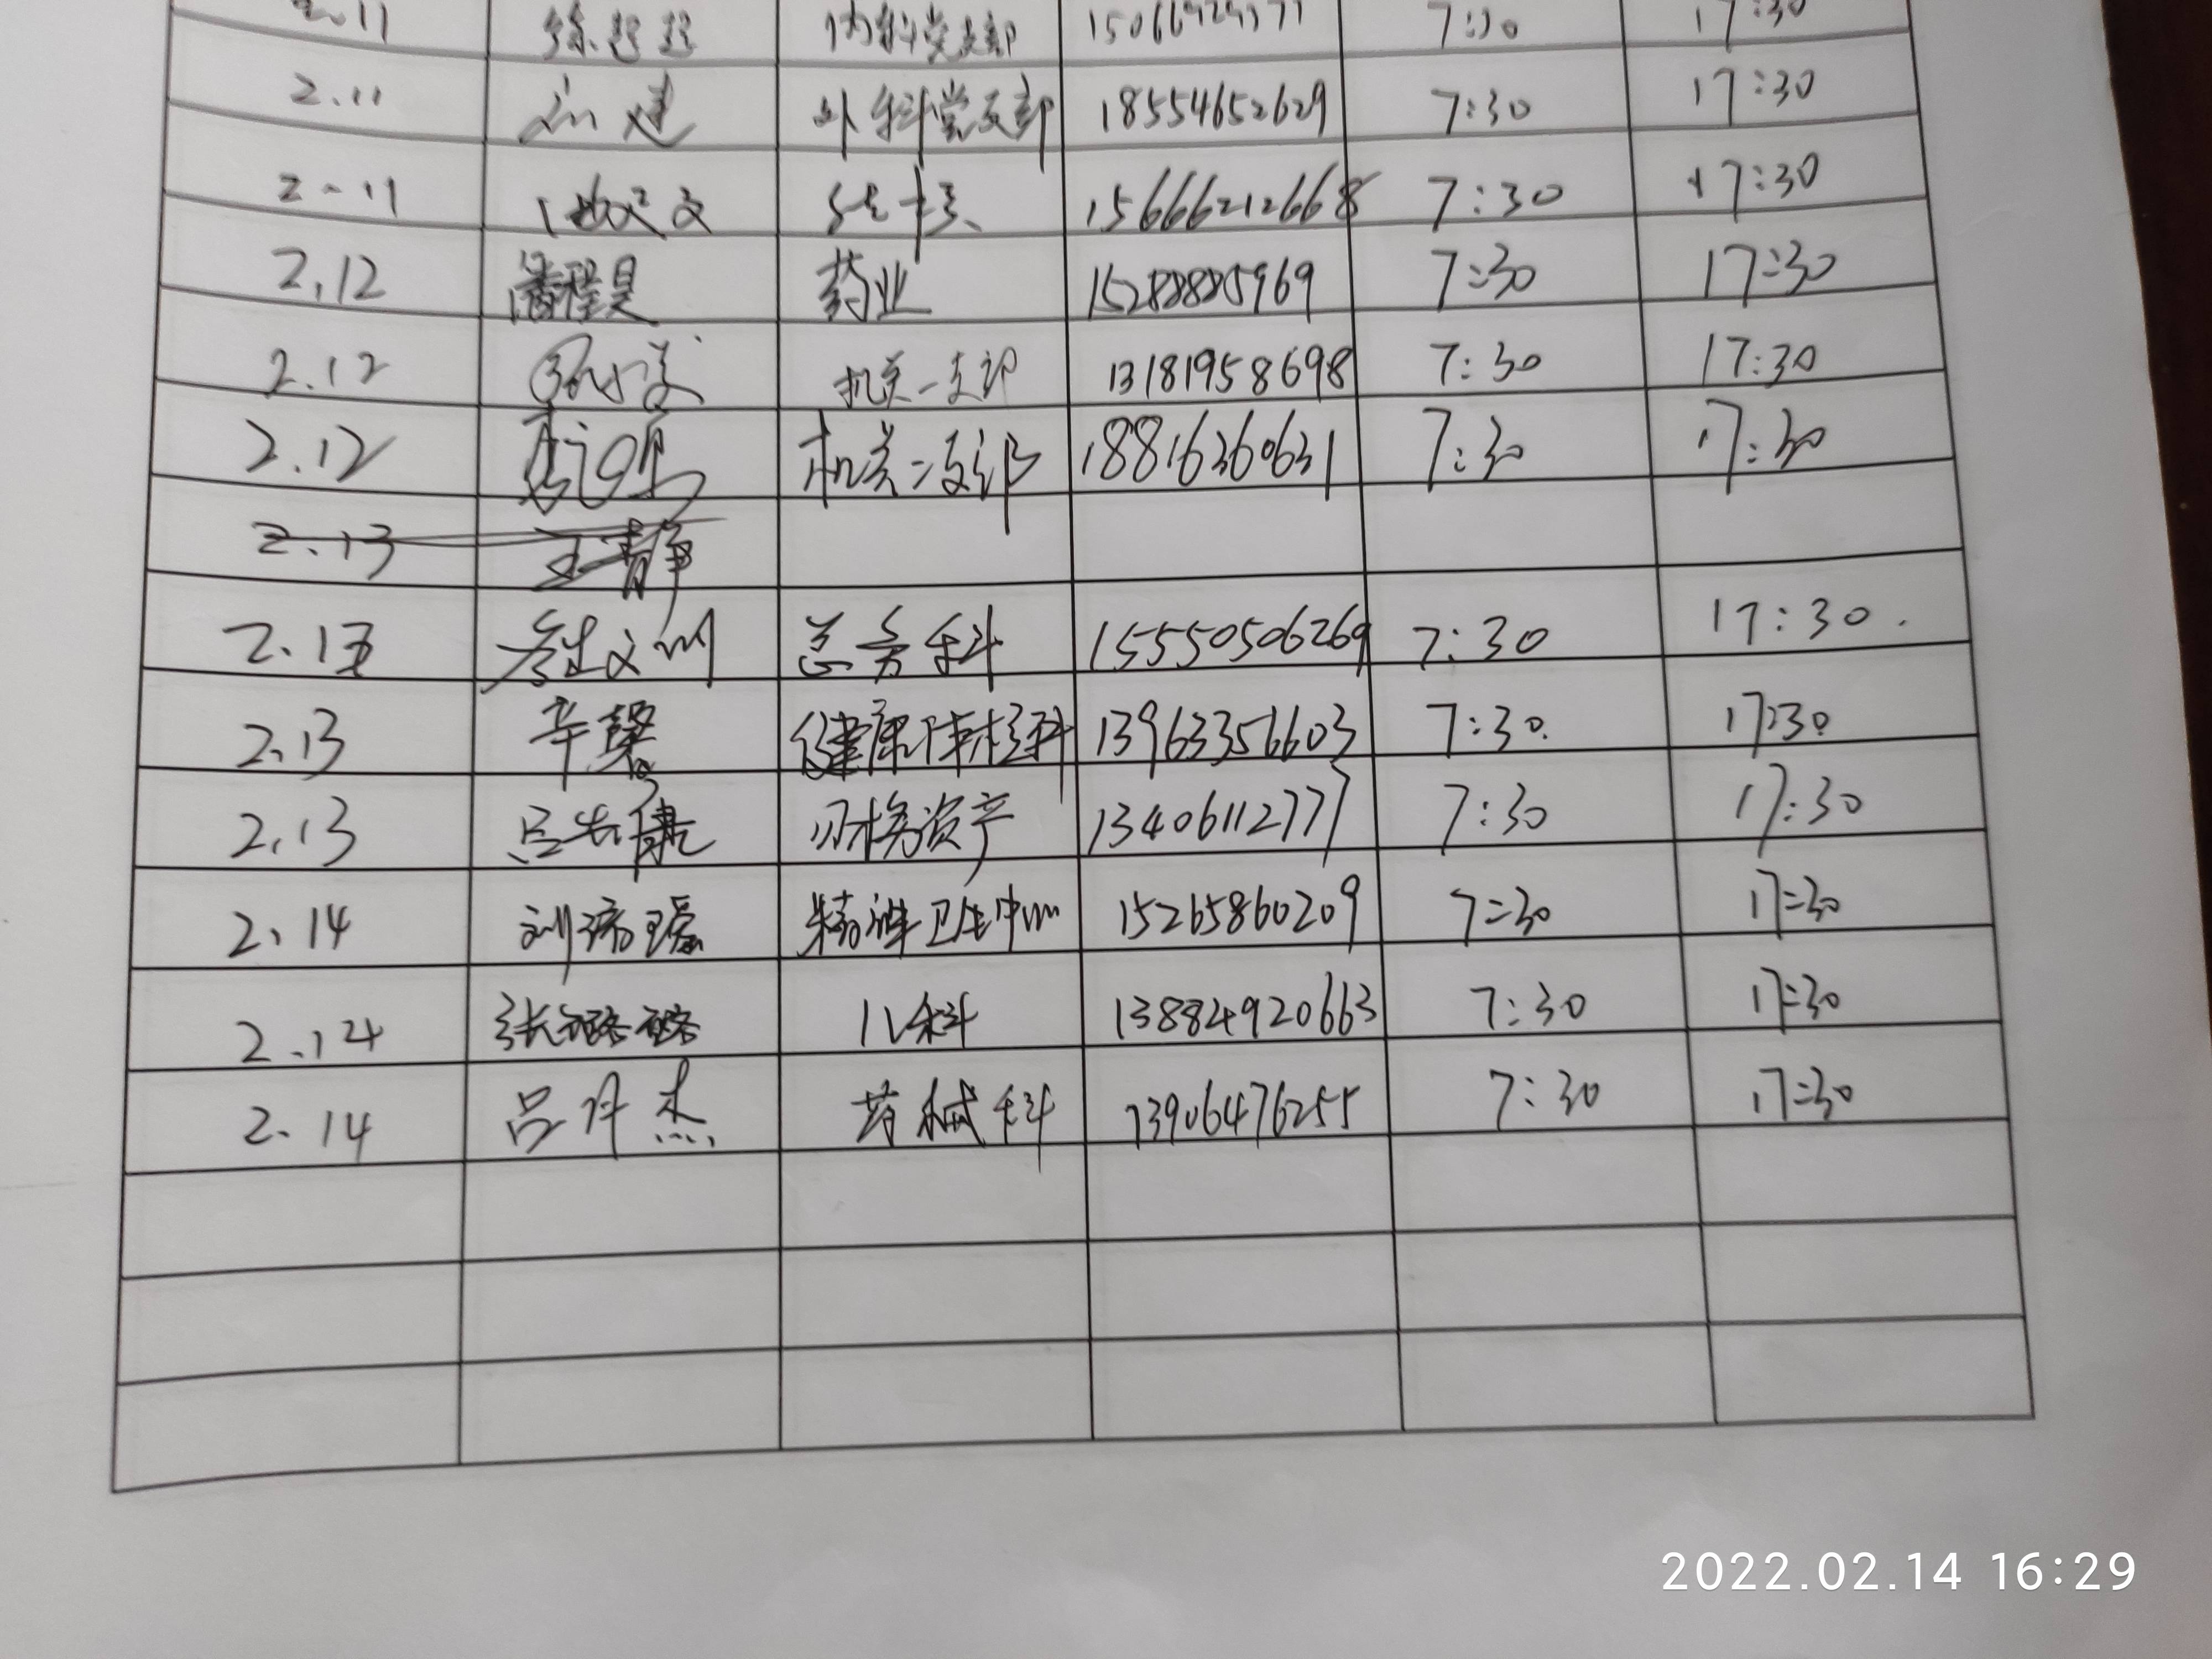 2.11 徐超超 内科党支部 7:30 17:30
2.11 刘建 外科党支部 18554652629 7:30 17:30
2-11 15666212668 7:30 17:30
2.12 潘程昊 药业 15288885969 7:30 17:30
2.12 机关一支部 13181958698 7:30 17:30
2.12 机关二支部 18816360631 7:30 17:30
2.13 王静
2.13 总务科 15550506269 7:30 17:30.
2.13 辛馨 健康体检科 13963356603 7:30. 17:30
2.13 吕 财务资产 13406112777 7:30 17:30
2.14 刘 精神卫生中心 15265860209 7:30 17:30
2.14 张璐璐 儿科 13884920663 7:30 17:30
2.14 吕丹杰 药械科 13906476255 7:30 17:30
2022.02.14 16:29